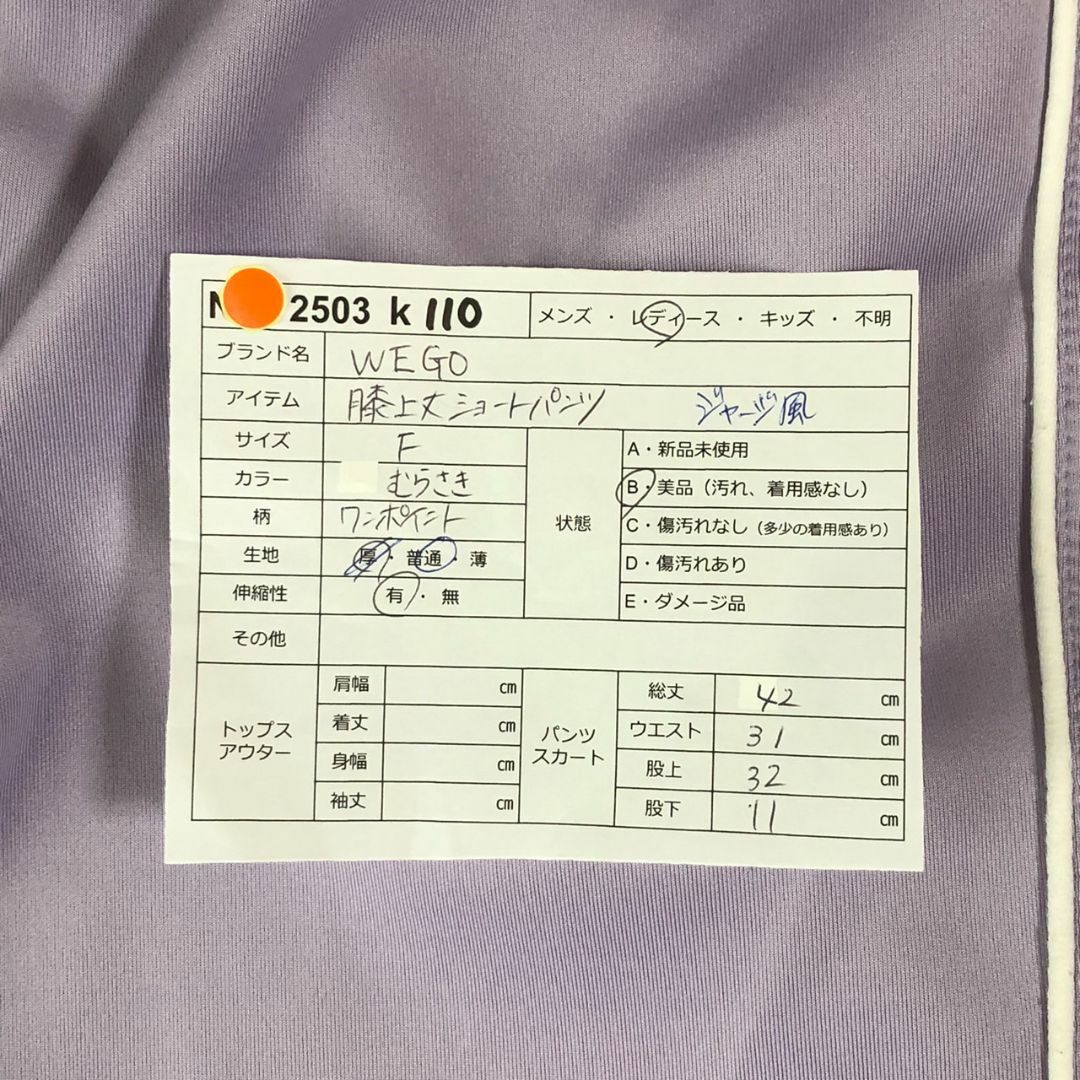 N 2503 k 110 メンズ ・ レディース ・ キッズ ・ 不明
ブランド名 WEGO
アイテム 膝上丈ショートパンツ ジャージ風
サイズ F
カラー むらさき
柄 ワンポイント
生地 厚・普通・薄
伸縮性 有・無
状態
A・新品未使用
B・美品（汚れ、着用感なし）
C・傷汚れなし（多少の着用感あり）
D・傷汚れあり
E・ダメージ品
その他
トップス
アウター
肩幅 ㎝
着丈 ㎝
身幅 ㎝
袖丈 ㎝
パンツ
スカート
総丈 42 ㎝
ウエスト 31 ㎝
股上 32 ㎝
股下 11 ㎝